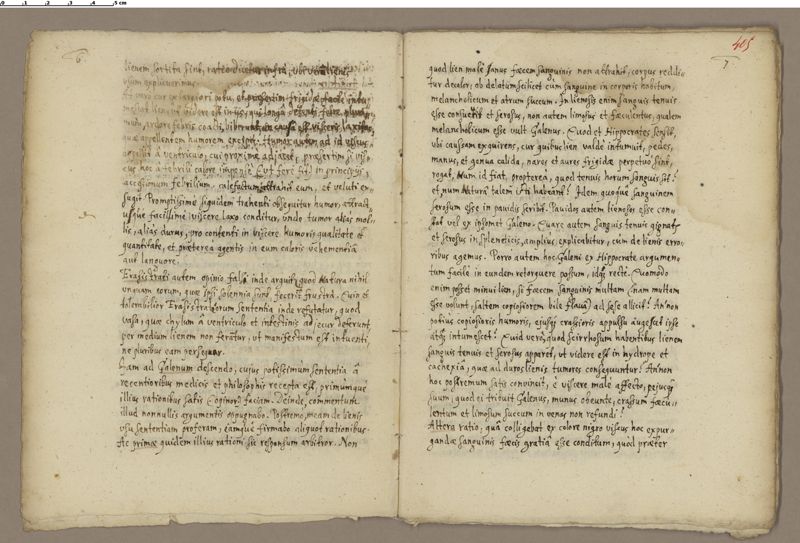 0 1 2 3 4 5 cm
6
lienem sortita sint, ratio dicetur infra, ubi veru lienis
usum explicuerimus
potu, et praesertim frigidae
videre est in iis, qui longa detenti febre
febris coacti, biberunt causa est visceris laxitas
quae appellentem humorem excipit. Humor autem ad id visceris
a ventriculo, cui proxime adjacet, praesertim si vis-
cus hoc a febrili calore Ut fere fit in principiis,
accessionum febrilium, calefactum attrahit eum, et veluti ex-
sugit. Promptissime siquidem trahenti obsequitur humor, extract
usque facillime in viscere laxo conditur, unde tumor alias mol-
lis, alias durus, pro contenti in viscere humoris qualitate et
quantitate, et praeterea agentis in eum caloris vehementia
aut languore.
Erasistrati autem opinio falsa inde arguitur quod Natura nihil
unquam eorum, quae ipsi solennia sunt, fecerit frustra. Quin et
tolerabilior Erasistratorum sententia inde refutatur, quod
vasa, quae chylum a ventriculo et intestinis ad jecur deferunt
per medium lienem non ferantur, ut manifestum est intuenti,
ne pluribus eam persequar.
Iam ad Galenum descendo, cujus potissimum sententia a
recentioribus medicis et philosophis recepta est, primumque
illius rationibus satis (opinor) faciam. Deinde, commentum
illud nonnullis argumentis oppugnabo. Postremo, meam de lienis
usu sententiam proferam, eamque firmabo aliquot rationibus.
Ac primae quidem illius rationi, sic responsum arbitror. Non
405
7
quod lien male sanus faecem sanguinis non attrahit, corpus reddi-
tur decolor, ob delatum scilicet cum sanguine in corporis habitum,
melancholicum et atrum succum. In lienosis enim sanguis tenuis
esse consuevit et serosus, non autem limosus et faeculentus, qualem
melancholicum esse vult Galenus. Quod et Hippocrates sensit,
ubi causam exquirens, cur quibus lien valde intumuit, pedes,
manus, et genua calida, nares et aures frigidae perpetuo sint,
rogat, Num id fiat, propterea, quod tenuis horum sanguis sit?
et num Natura talem isti habeant? Idem quoque sanguinem
serosum esse in pavidis scribit. Pavidos autem lienosos esse con-
stat vel ex ipsomet Galeno. Quare autem sanguis tenuis gignat
et serosus in spleneticis, amplius explicabitur, cum de lienis erro-
ribus agemus. Porro autem hoc Galeni ex Hippocrate argumen-
tum facile in eundem retorquere possum, idque recte. Quomodo
enim posset minui lien, si faecem sanguinis multam (nam multam
esse volunt, saltem copiosiorem bile flava) ad sese allicit? An non
potius copiosioris humoris, ejusque crassioris appulsu augescit ipse
atque intumescit? Quid vero, quod scirrhosum habentibus lienem
sanguis tenuis et serosus apparet, ut videre est in hydrope et
cachexia, quae ad duros lienis tumores consequuntur? An non
hoc postremum satis convincit, e viscere male affecto, nec
suum, quod ei tribuit Galenus, munus obeunte, crassum faecu-
lentum et limosum succum in venas non refundi?
Altera ratio, qua colligebat ex colore nigro viscus hoc expur-
gandae sanguinis faecis gratia esse conditum, quod praeter